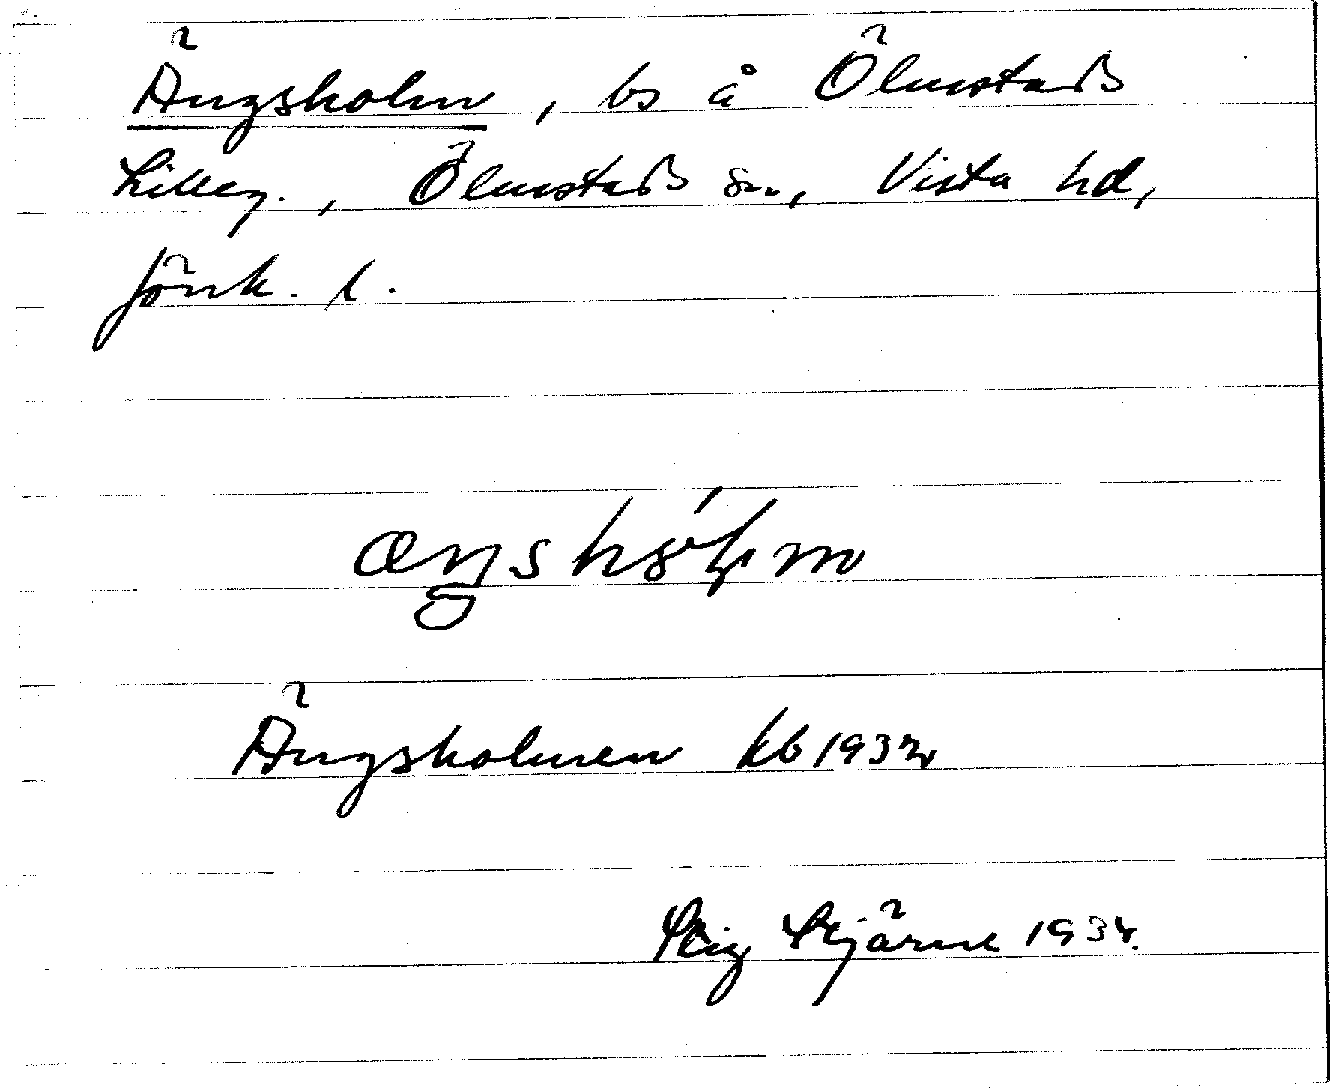 Ängsholm, bs å Ölmstads
Lilleg., Ölmstads sn, Vista hd,
Jönk. l.
Ängsholmen kb 1932
Stig Stjärne 1934.